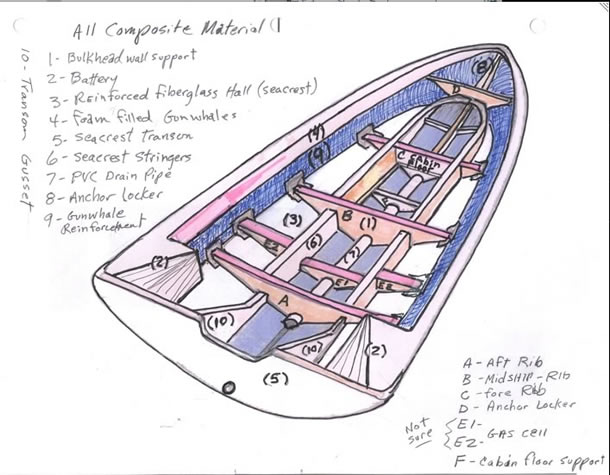 All Composite Material
1- Bulkhead wall support
2- Battery
3- Reinforced fiberglass Hall (seacrest)
4- Foam filled Gunwhales
5- Seacrest Transom
6- Seacrest Stringers
7- PVC Drain Pipe
8- Anchor Locker
9- Gunwhale
Reinforcement
10- Transom Gusset
(8)
D
(4)
(9)
C cabin
floor
(3)
B (1)
E2
(6)
(7)
(2)
E1
E2
A
(10)
(10)
(2)
(5)
A- Aft Rib
B- Midship-Rib
C- fore Rib
D- Anchor Locker
Not
sure
E1-
E2- GAS cell
F- Cabin floor support